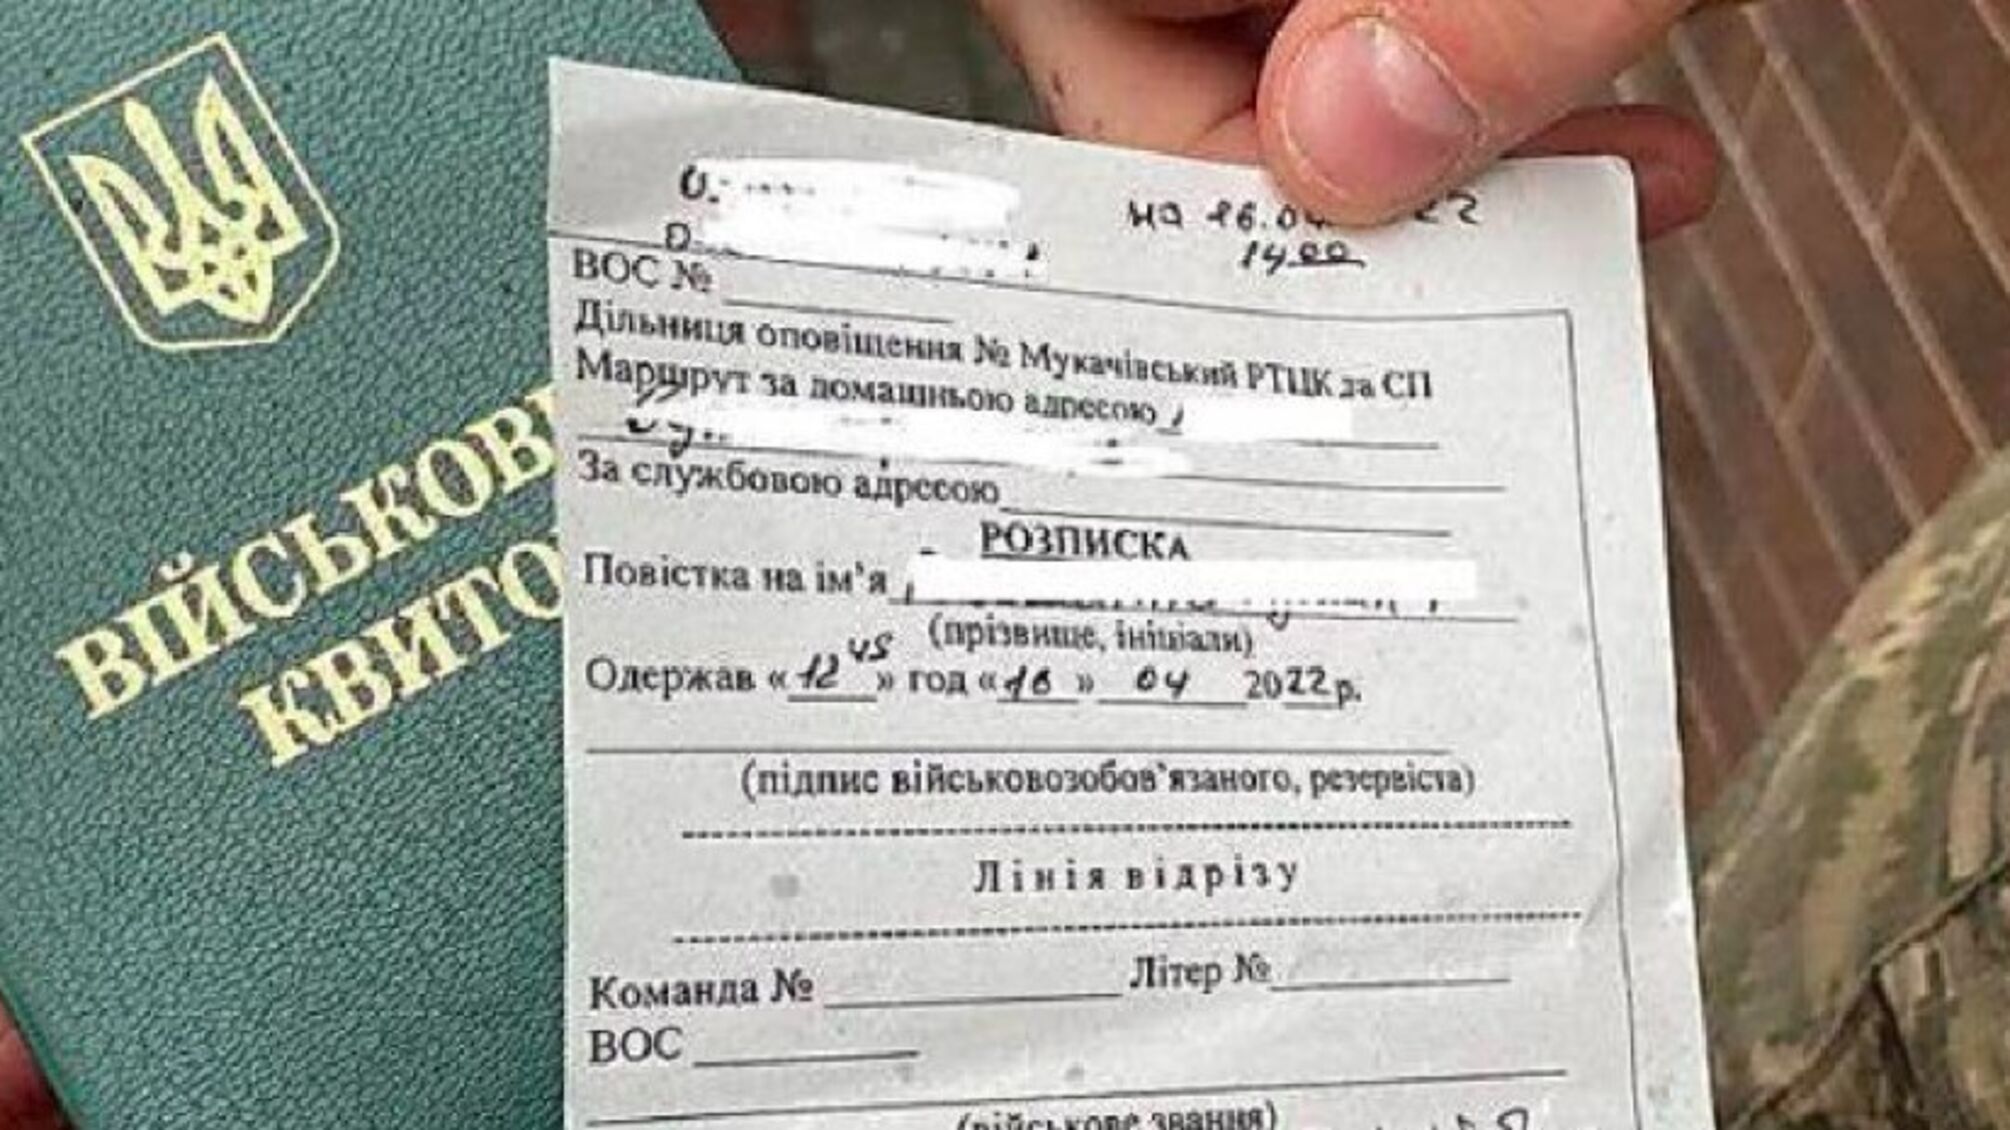 ВІЙСЬКОВ
КВИТО
на 16.0 22
14 00
ВОС №
Дільниця оповіщення № Мукачівський РТЦК та СП
Маршрут за домашньою адресою
За службовою адресою
РОЗПИСКА
Повістка на ім’я
(прізвище, ініціали)
Одержав «12 45» год «16» 04 2022 р.
(підпис військовозобов’язаного, резервіста)
Лінія відрізу
Команда № Літер №
ВОС
(військове звання)